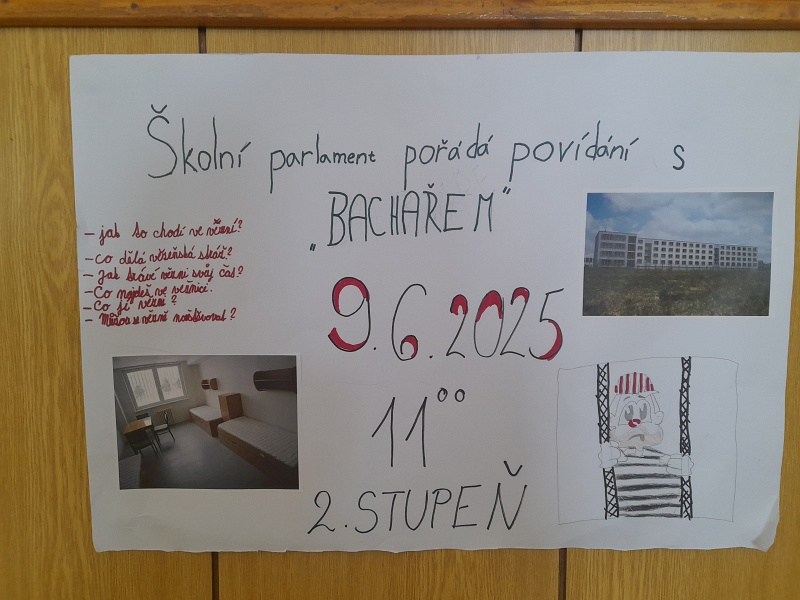 Školní parlament pořádá povídání s
„BACHAŘEM"
9.6.2025
11⁰⁰
2. STUPEŇ
- jak to chodí ve vězení?
- Co dělá vězeňská stráž?
- Jak tráví vězni svůj čas?
- Co najdeš ve věznici.
- Co jí vězni?
- se vězně navštěvovat?